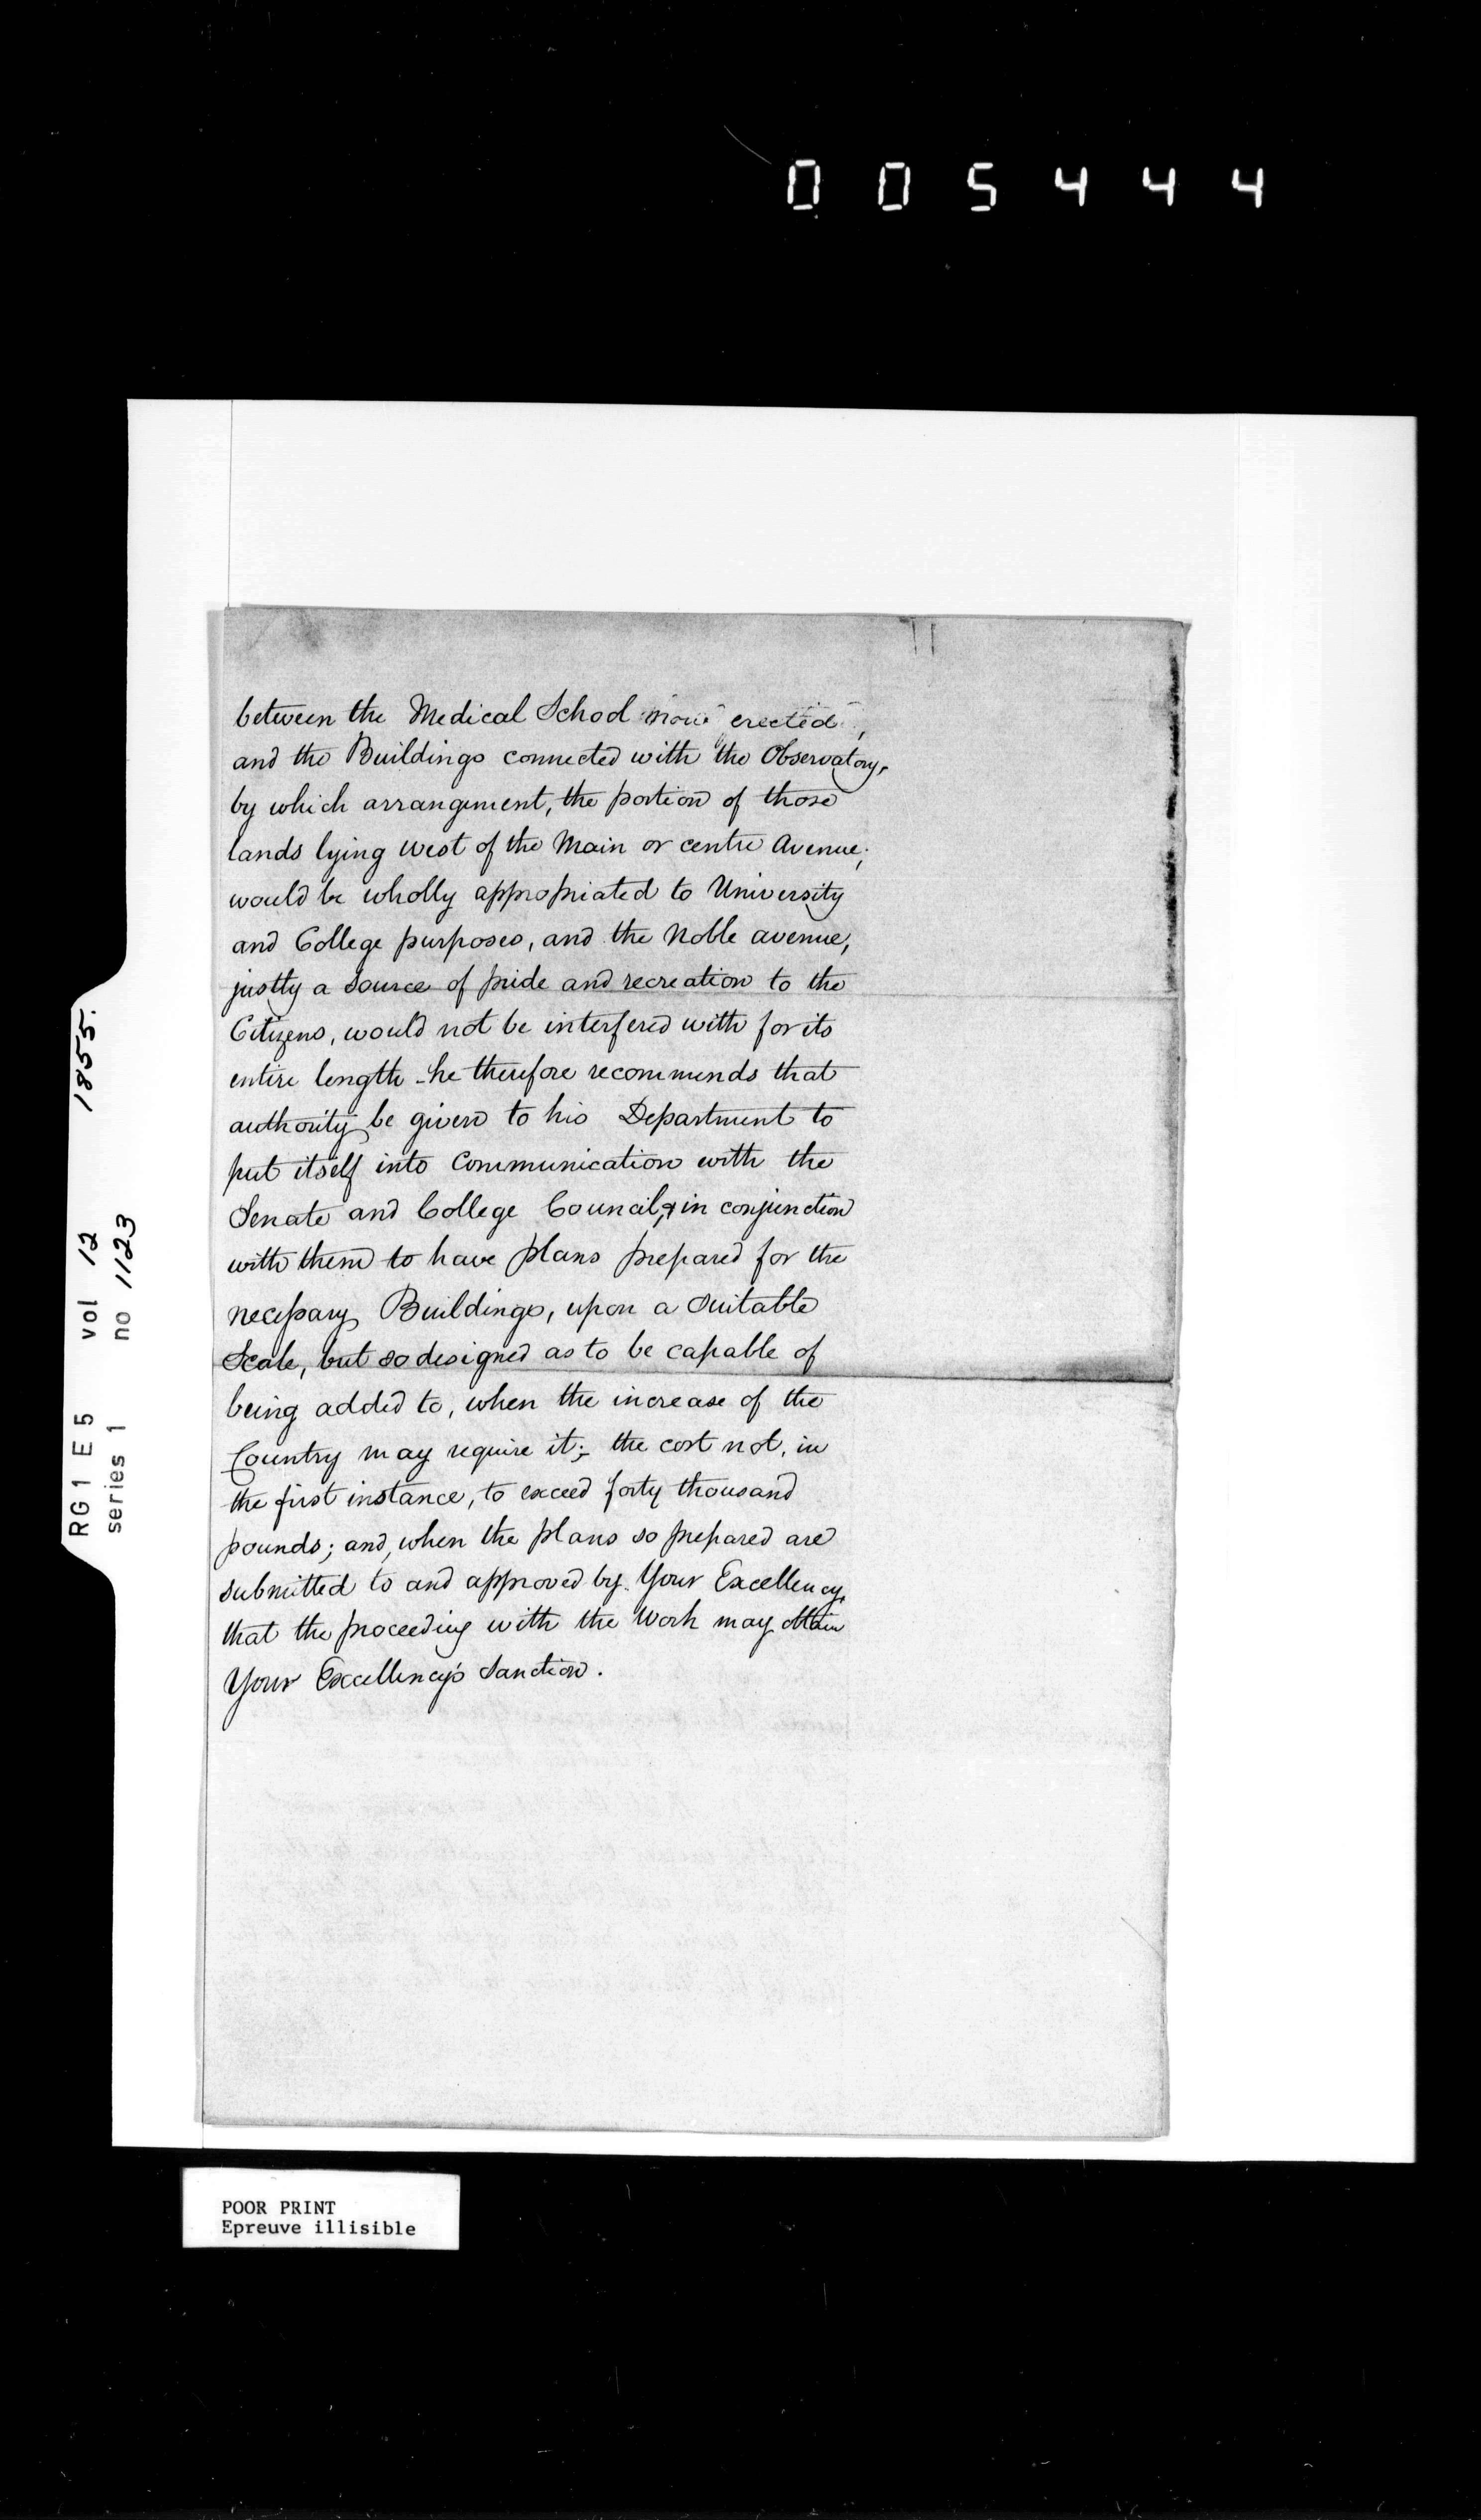 005444
between the Medical School now erected,
and the Buildings connected with the Observatory,
by which arrangement, the portion of those
lands lying west of the Main or centre Avenue,
would be wholly appropriated to University
and College purposes, and the Noble avenue,
justly a source of pride and recreation to the
Citizens, would not be interfered with for its
entire length - he therefore recommends that
authority be given to his Department to
put itself into Communication with the
Senate and College Council, & in conjunction
with them to have plans prepared for the
necessary Buildings, upon a suitable
Scale, but so designed as to be capable of
being added to, when the increase of the
Country may require it; the cost not, in
the first instance, to exceed forty thousand
pounds; and, when the plans so prepared are
submitted to and approved by Your Excellency,
that the proceeding with the Work may obtain
Your Excellency's Sanction.
RG1 E5 vol 12 1855.
series 1 no 1123
POOR PRINT
Epreuve illisible